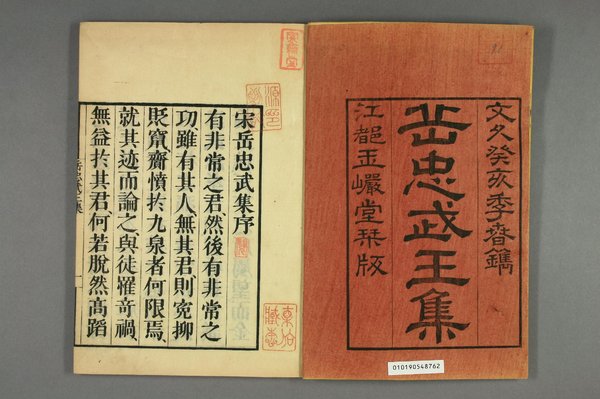 文久癸亥季春鐫
岳忠武王集
江都玉巖堂栞版
010190548762
宋岳忠武集序
有非常之君、然後有非常之
功、雖有其人無其君則寃抑
貶竄齋憤於九泉者何限焉、
就其迹而論之、與徒罹奇禍、
無益於其君何若脫然高蹈